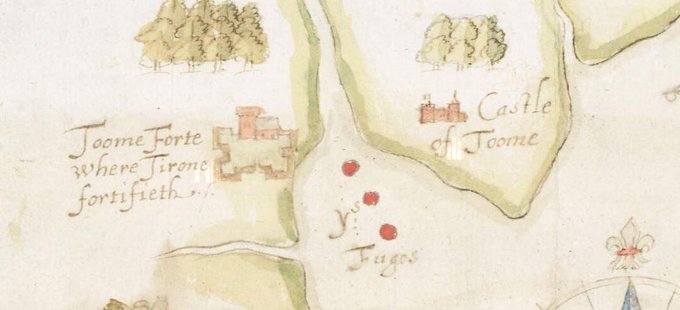 Toome Forte
where Tirone
fortifieth
Castle
of Toome
yͤˢ
Fugos